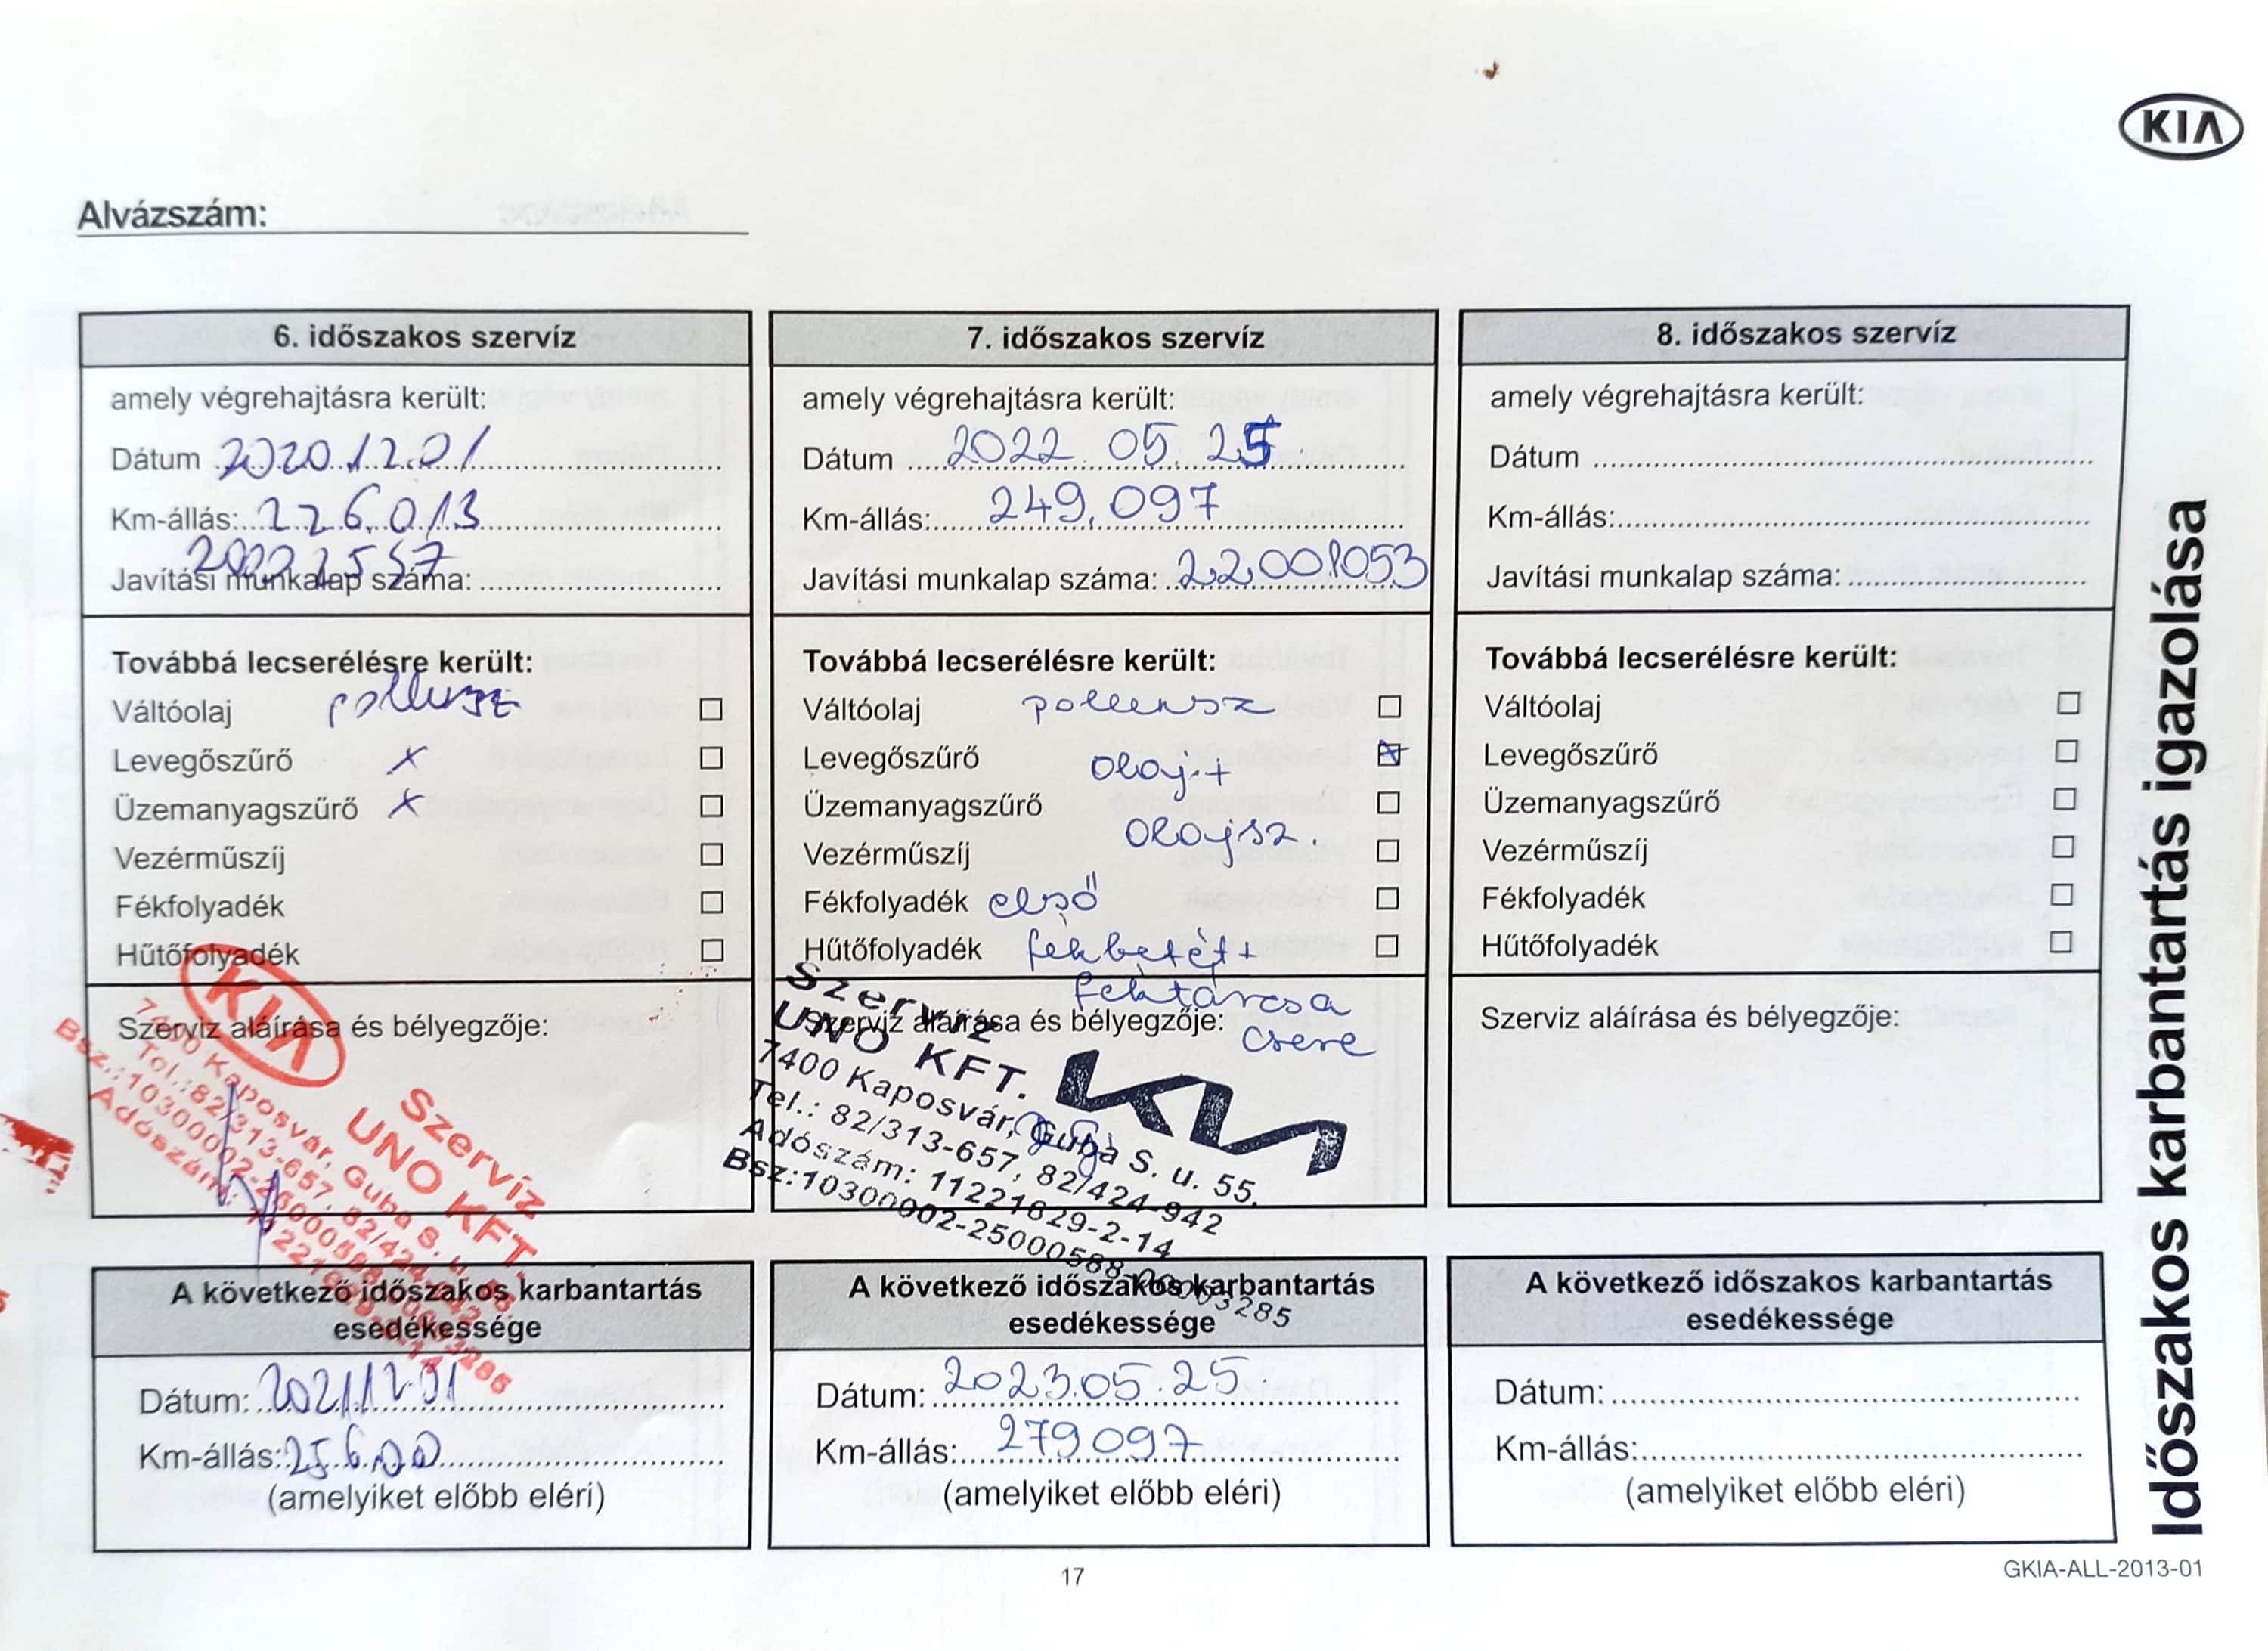 KIA
Alvázszám:
6. időszakos szervíz
amely végrehajtásra került:
Dátum 2020.12.01
Km-állás: 226.013
Javítási munkalap száma:
Továbbá lecserélésre került:
Váltóolaj pollensz □
Levegőszűrő x □
Üzemanyagszűrő x □
Vezérműszíj □
Fékfolyadék □
Hűtőfolyadék □
Szerviz aláírása és bélyegzője:
KIA Szervíz
UNO KFT.
7400 Kaposvár, Guba S. u. 55.
Tel.:82/313-657, 82/424-942
A következő időszakos karbantartás
esedékessége
Dátum: 2021.12.01
Km-állás:
(amelyiket előbb eléri)
7. időszakos szervíz
amely végrehajtásra került:
Dátum 2022 05. 25
Km-állás: 249.097
Javítási munkalap száma: 22001053
Továbbá lecserélésre került:
Váltóolaj pollensz □
Levegőszűrő olaj+ ☒
Üzemanyagszűrő □
olajsz.
Vezérműszíj □
Fékfolyadék első □
Hűtőfolyadék fékbetét+ □
féktárcsa
Szerviz aláírása és bélyegzője: csere
Szerviz
UNO KFT. KIA
7400 Kaposvár, Guba S. u. 55.
Tel.: 82/313-657, 82/424-942
Adószám: 11221629-2-14
Bsz:10300002-25000588-00003285
A következő időszakos karbantartás
esedékessége
Dátum: 2023.05.25.
Km-állás: 279097
(amelyiket előbb eléri)
8. időszakos szervíz
amely végrehajtásra került:
Dátum
Km-állás:
Javítási munkalap száma:
Továbbá lecserélésre került:
Váltóolaj □
Levegőszűrő □
Üzemanyagszűrő □
Vezérműszíj □
Fékfolyadék □
Hűtőfolyadék □
Szerviz aláírása és bélyegzője:
A következő időszakos karbantartás
esedékessége
Dátum:
Km-állás:
(amelyiket előbb eléri)
Időszakos karbantartás igazolása
17
GKIA-ALL-2013-01